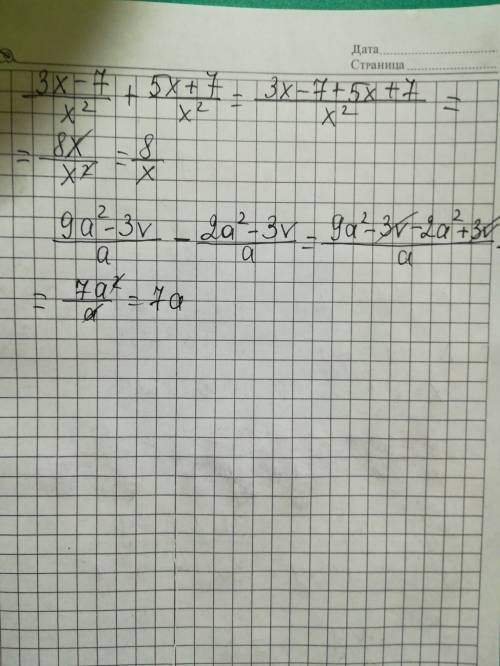 Дата
Страница
(3x-7)/x² + (5x+7)/x² = (3x-7+5x+7)/x² =
= 8x/x² = 8/x
(9a²-3v)/a - (2a²-3v)/a = (9a²-3v-2a²+3v)/a
= 7a²/a = 7a